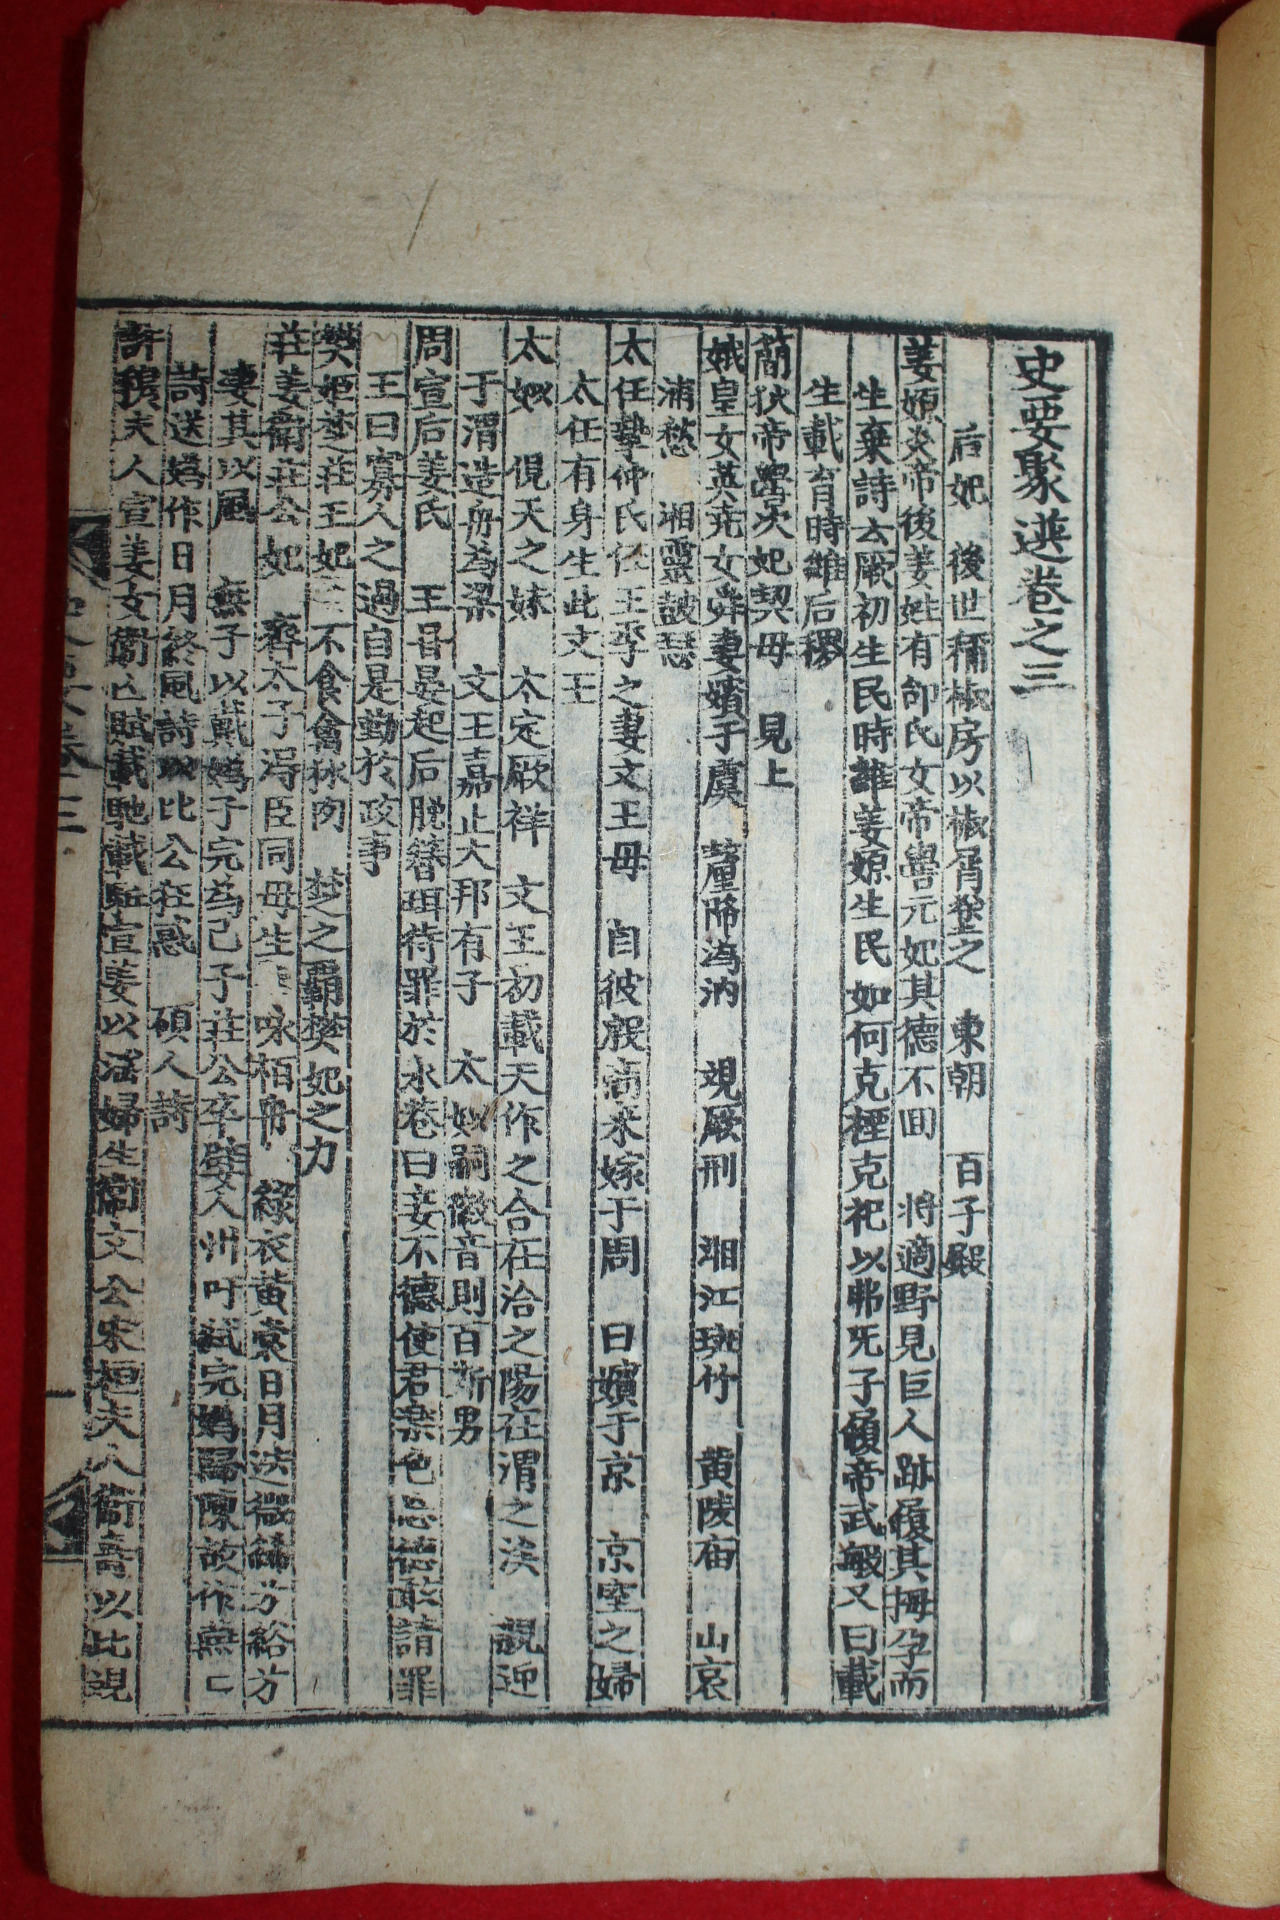 史要聚選卷之三
后妃 後世稱椒房以椒屑塗之 東朝 百子殿
姜嫄炎帝後姜姓有邰氏女帝嚳元妃其德不回 將適野見巨人跡履其拇孕而
生棄詩云厥初生民時維姜嫄生民如何克禋克祀以弗旡子履帝武敏又曰載
生載育時維后稷
簡狄帝嚳次妃契母 見上
娥皇女英尭女舜妻嬪于虞 釐降溈汭 覌厥刑 湘江斑竹 黄陵庙 山哀
浦愁 湘靈皷瑟
太任摯仲氏任王季之妻文王母 自彼殷商来嫁于周 曰嬪于京 京室之婦
太任有身生此文王
太姒 俔天之妹 大定厥祥 文王初載天作之合在洽之陽在渭之涘 親迎
于渭造舟為梁 文王嘉止大邦有子 太姒嗣徽音則百斯男
周宣后姜氏 王甞晏起后脱簪珥待罪於永巷曰妾不德使君楽色忘德敢請罪
王曰寡人之過自是勤於政事
樊姬楚荘王妃 不食禽 肉 楚之覇樊妃之力
荘姜衛荘公妃 齊太子淂臣同母生 咏栢舟 緑衣黄裳日月迭微絺方綌方
凄其以風 無子以戴媯子完為己子荘公卒嬖人州吁弑完媯歸陳故作燕〻
詩送媯作日月終風詩以比公狂惑 碩人詩
許穆夫人宣姜女衛亡賦載馳載駈宣姜以淫婦生衛文公宋桓夫人衛 以此覌
三
一